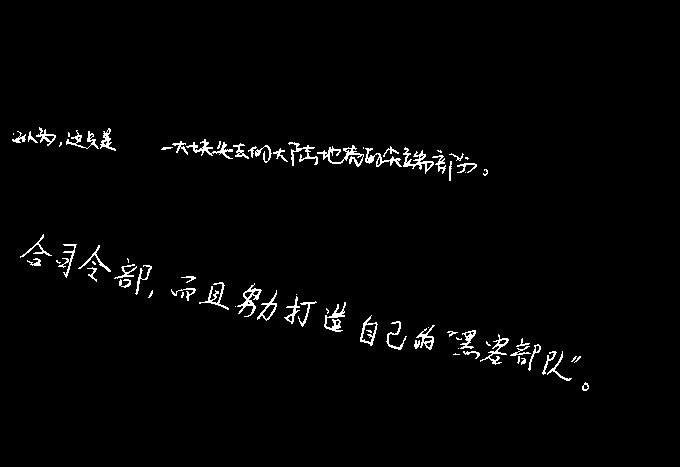 认为,这只是 一大块失去的大陆地壳的尖端部分。
合司令部,而且努力打造自己的"黑客部队"。